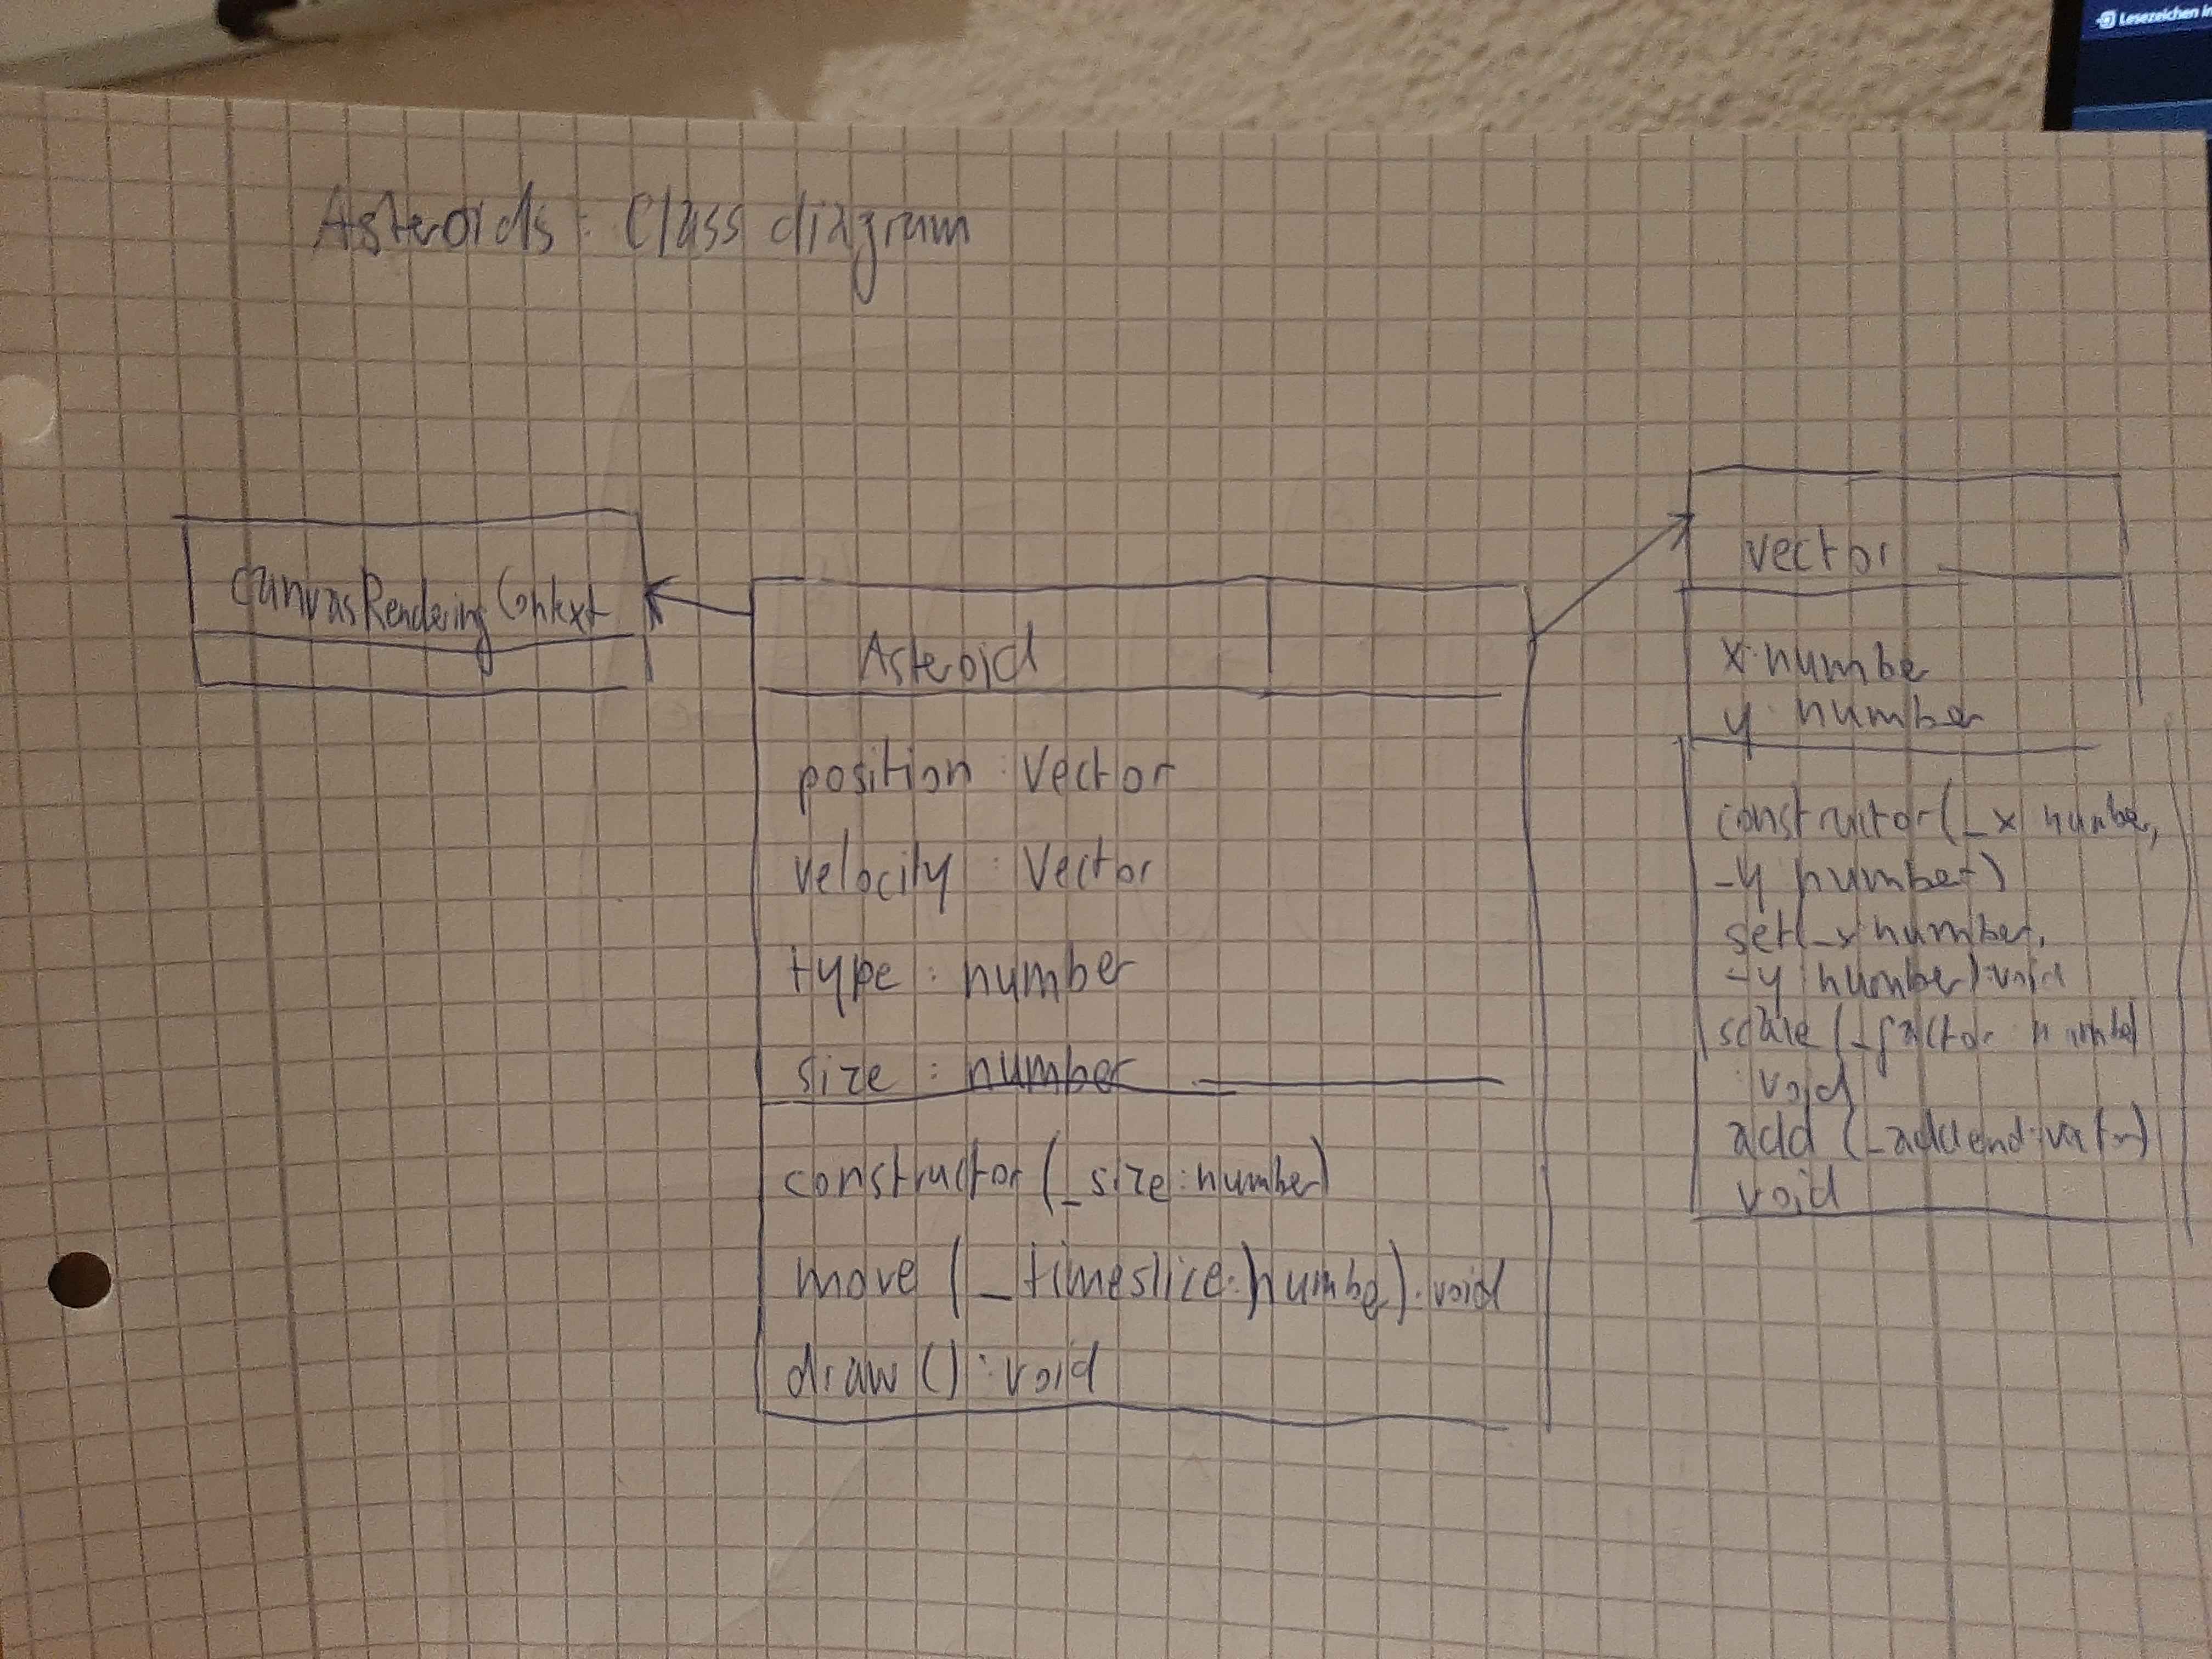 Lesezeichen in
Asteroids: Class diagram
CanvasRenderingContext
Asteroid
position: Vector
velocity: Vector
type: number
size: number
constructor (_size: number)
move (_timeslice: number): void
draw (): void
vector
x: number
y: number
constructor(_x number,
_y number)
set(_x number,
_y: number): void
scale (_factor: number
: void
add (_addend: vector)
void